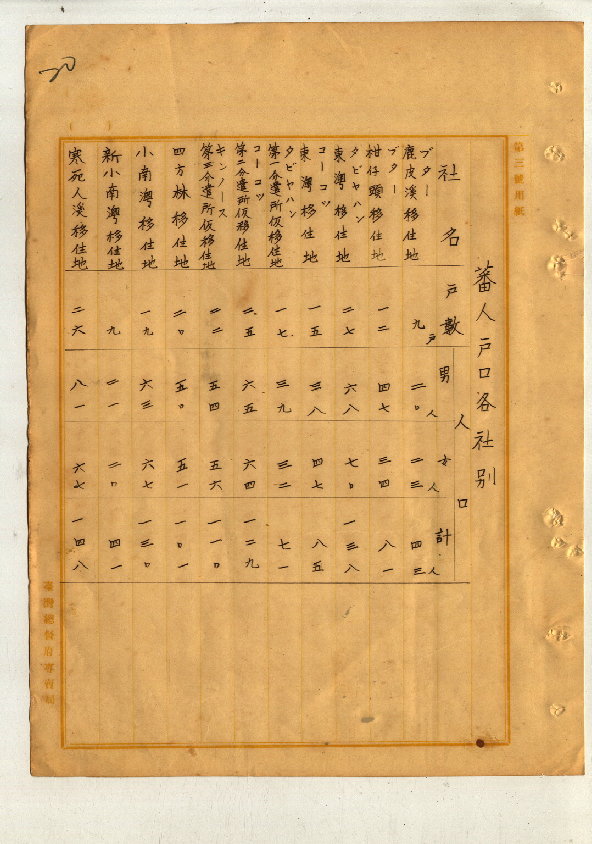 第三號用紙
蕃人戶口各社別
社名 戶數 人口
男 女 計
ブター
鹿皮溪移住地 九戶 二〇人 二三人 四三人
ブター
柑仔頭移住地 一二 四七 三四 八一
タビヤハン
東澳移住地 二七 六八 七〇 一三八
コーゴツ
東澳移住地 一五 三八 四七 八五
タビヤハン
第一分遣所仮移住地 一七 三九 三二 七一
コーゴツ
第二分遣所仮移住地 二五 六五 六四 一二九
キンノース
第三分遣所仮移住地 二二 五四 五六 一一〇
四方林移住地 二〇 五〇 五一 一〇一
小南澳移住地 一九 六三 六七 一三〇
新小南澳移住地 九 二一 二〇 四一
寒死人溪移住地 二六 八一 六七 一四八
臺灣總督府專賣局